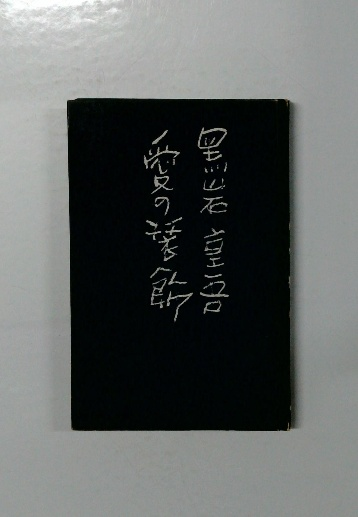 黒岩重吾
愛の装飾